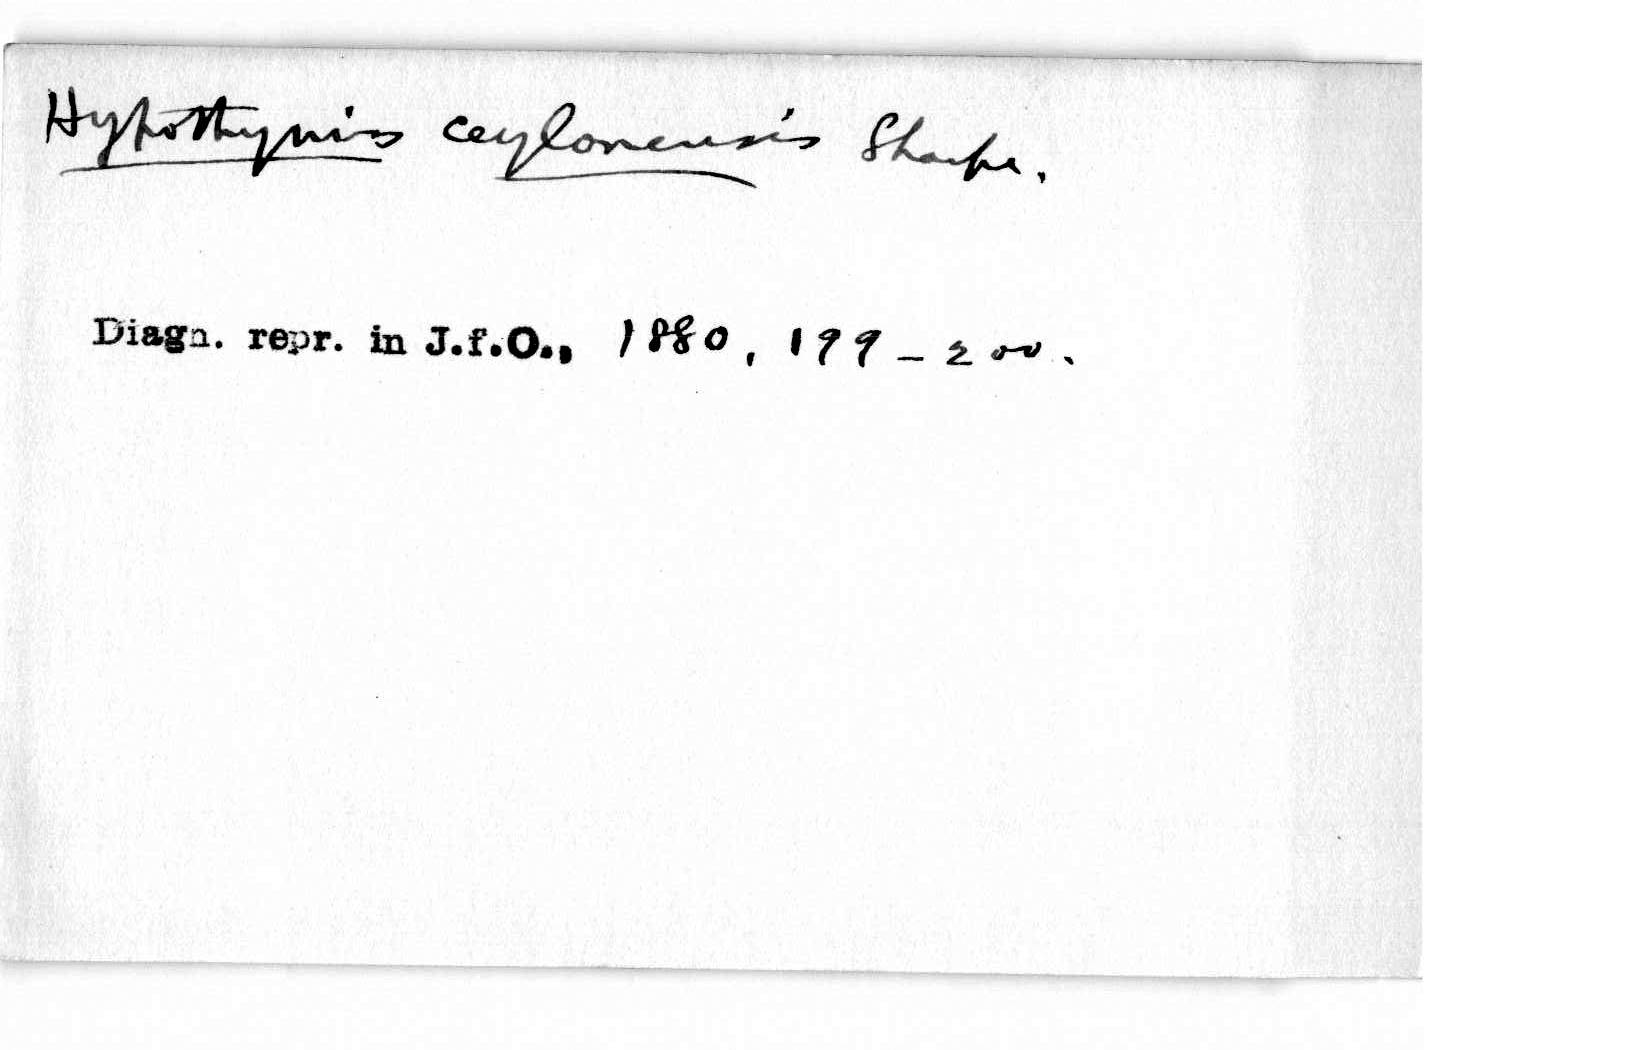 Hypothymis ceylonensis Sharpe.
Diagn. repr. in J.f.O., 1880, 199-200.